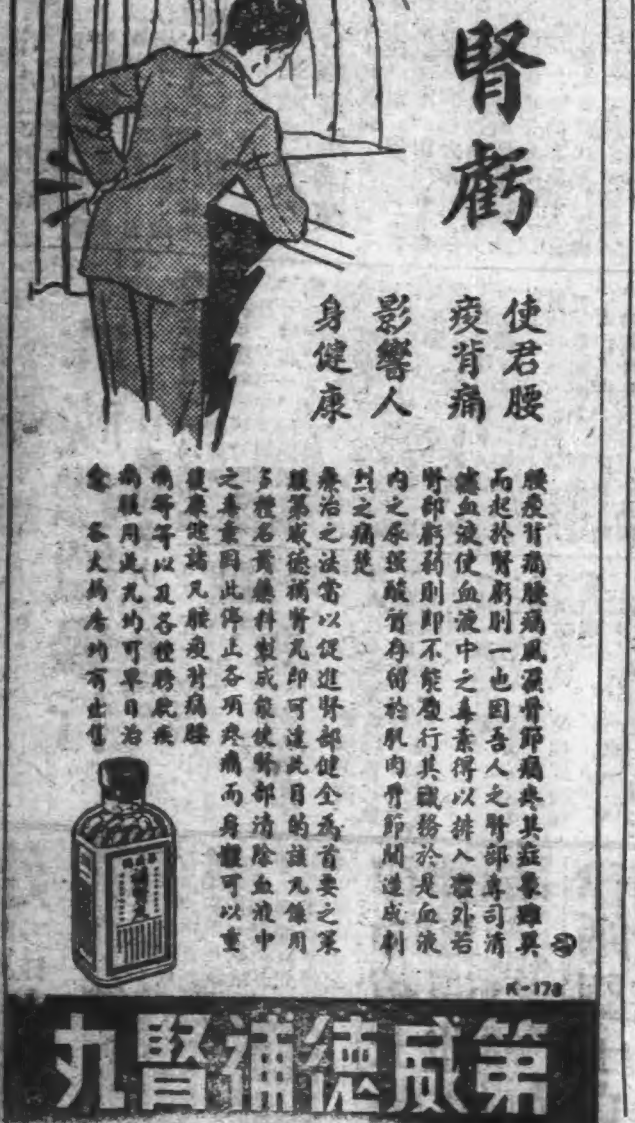 腎虧
使君腰
痠背痛
影響人
身健康
腰痠背痛腰痛風濕骨節痛疼其症象雖異
而起於腎虧則一也因吾人之腎部專司清
濾血液使血液中之毒素得以排入體外若
腎部虧弱則即不能履行其職務於是血液
內之尿強酸質存留於肌肉骨節間造成劇
烈之痛楚
療治之法當以促進腎部健全為首要之策
服第威德補腎丸即可達此目的該丸係用
多種名貴藥料製成能使腎部清除血液中
之毒素因此停止各項疼痛而身體可以重
復康健諸凡腰痠背痛腰
痛等等以及各種膀胱疾
病服用此丸均可早日治
愈 各大藥房均有出售
K-178
第威德補腎丸